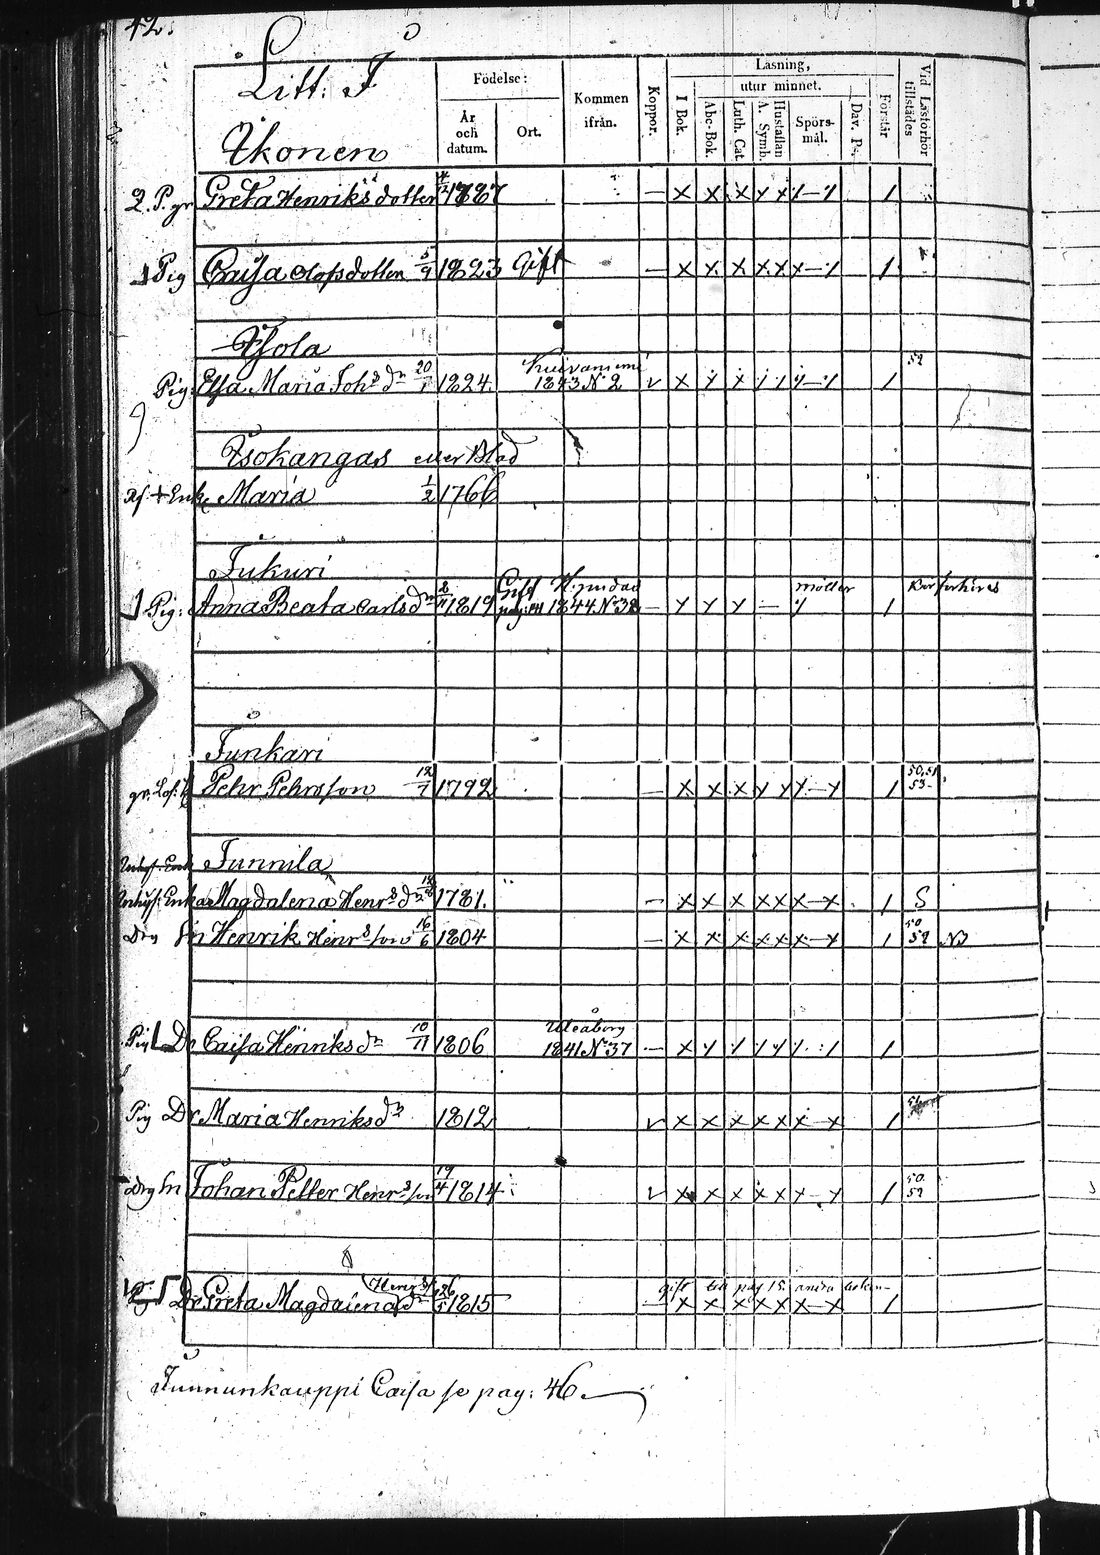 42.
Litt. I
Födelse:
År och datum.
Ort.
Kommen ifrån.
Koppor.
Läsning,
I Bok.
utur minnet.
Abc-Bok.
Luth. Cat.
A. Symb.
Hustaflan
Spörsmål.
Dav. Ps.
Förstår
Vid Läsförhör tillstädes
Ikonen
2. P. gr Greta Henriksdotter 1827 — x x x x x x—x 1
Pig Caisa Olofsdotter 5/9 1823 Gift — x x x x x x—x 1
Isola
Pig: Elsa Maria Johs dr 20/1 1824. Kuivaniemi 1843 N: 2 v x x x x x x—x 1 52
Isokangas eller Blad
+ Enk Maria 1/2 1766
Jukuri
Pig: Anna Beata Carlsdr 1819 Gift 1844. N: 38 — x x x — x 1
Junkari
Pehr Pehrsson 12/7 1792 — x x x x x x—x 1 50, 51 53
Junnila
Inhys: Enka Magdalena Henrs dr 1781. — x x x x x x—x 1 S
Drg Sn Henrik Henrsson 16/6 1804 — x x x x x x—x 1 50 52
Pig Dr Caisa Henriks dr 10/11 1806 Uleåborg 1841 N: 37 — x x x x x x 1
Pig Dr Maria Henriksdr 1812 v x x x x x x—x 1
Drg Sn Johan Petter Henrsson 19/4 1814 v x x x x x x—x 1 50 52
Dr Greta Magdalena Henrs dr 26/5 1815 gift pag 15 andra boken — x x x x x x—x 1
Junnunkauppi Caisa se pag: 46